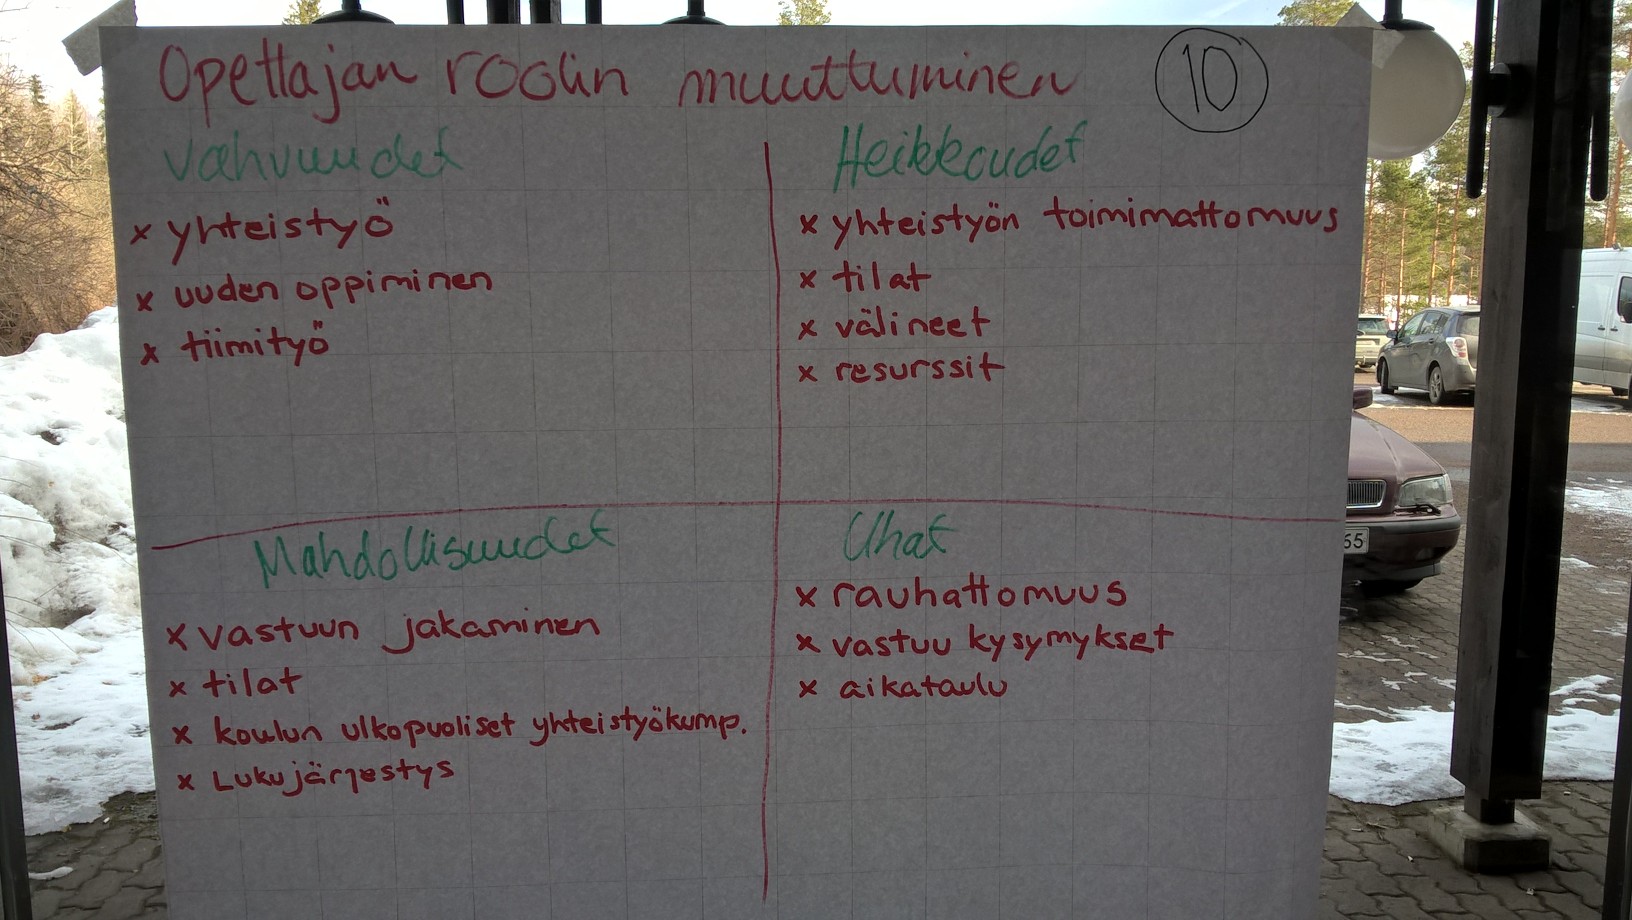 Opettajan roolin muuttuminen
10
Vahvuudet
x yhteistyö
x uuden oppiminen
x tiimityö
Heikkoudet
x yhteistyön toimimattomuus
x tilat
x välineet
x resurssit
Mahdollisuudet
x vastuun jakaminen
x tilat
x koulun ulkopuoliset yhteistyökump.
x Lukujärjestys
Uhat
x rauhattomuus
x vastuu kysymykset
x aikataulu
65